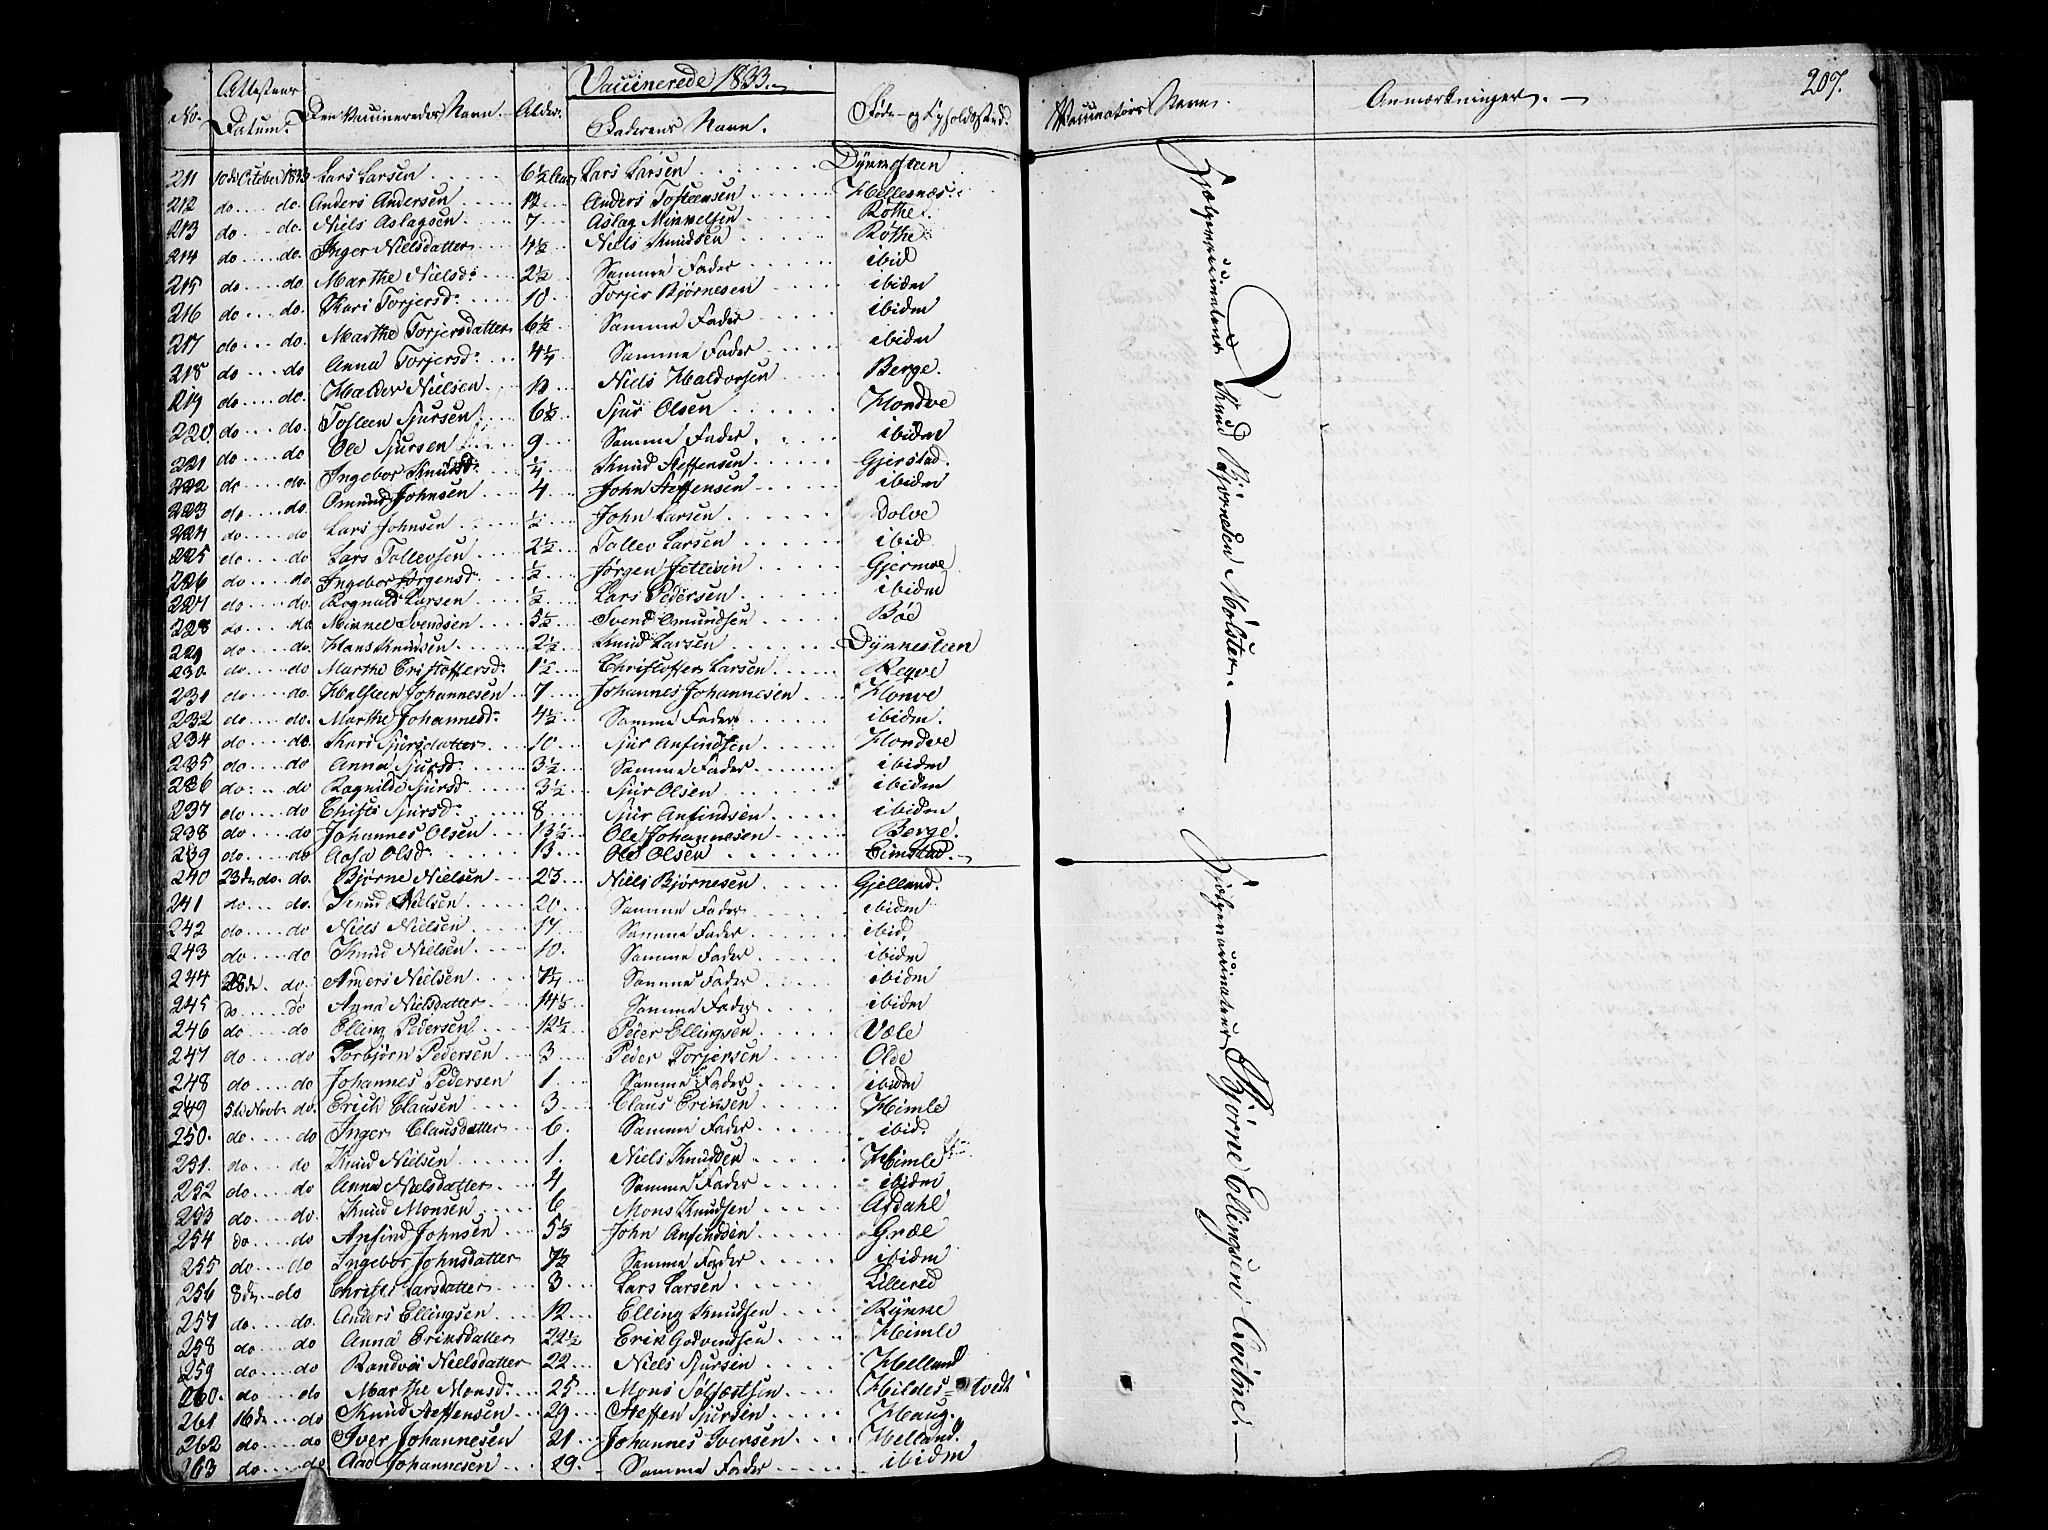 Vaccinerede 1833.
207.
No. Attestens Datum. Den Vaccineredes Navn. Alder. Faderens Navn. Føde- og Opholdssted. Vaccinators Navn. Anmærkninger.
211 10de October 1833 Lars Larsen 6½ Aar Lars Larsen Dÿmmesteen
212 do do. Anders Andersen 12 Anders Tosteensen Hellesnæs
213 do do. Niels Aslagsen 7 Aslag Mikkelsen Røthe
214 do do. Inger Nielsdatter 4½ Niels Knudsen Røthe
215 do do. Marthe Nielsd: 2½ Samme Fader ibid
216 do do. Kari Torjersd: 10 Torjer Bjørnesen ibidm
217 do do. Marthe Torjersdatter 6½ Samme Fader ibidm
218 do do Anna Torjersd: 4¼ Samme Fader ibidm
219 do do. Haldor Nielsen 12 Niels Haldorsen Berge.
220 do do. Tosteen Sjursen 6½ Sjur Olsen Hondve
221 do do Ole Sjursen 9 Samme Fader ibidm
222 do do. Ingebor Knudsd: ¼ Knud Steffensen Gjerstad.
223 do do Omund Johnsen 4 John Steffensen ibidm
224 do do Lars Johnsen ½ John Larsen Dolve
225 do do Lars Tollevsen 2½ Tollev Larsen ibid
226 do do. Ingebor Jørgensd: ½ Jørgen Gjermoe
227 do do Rognald Larsen ½ Lars Pedersen ibidm
228 do do Mikkel Svendsen 5½ Svend Omundsen Bøe
229 do do. Hans Knudsen 2½ Knud Larsen Dÿmmesteen
230 do do Marthe Cristoffersd: 1½ Christoffer Larsen Reqve
231 do do. Halsteen Johannesen 7 Johannes Johannesen Honve
232 do do. Marthe Johannesd: 4½ Samme Fader ibidm.
234 do do. Kari Sjursdatter 10 Sjur Anfindsen Hondve
235 do do Anna Sjursd: 3½ Samme Fader ibidm
236 do do Ragnilde Sjursd: 3½ Sjur Olsen ibidm
237 do do Christi Sjursd: 8 Sjur Anfindsen ibidm
238 do do. Johannes Olsen 13½ Ole Johannesen Berge.
239 do do Aasa Olsd: 13 Ole Olsen Eimstad.
240 23de do. do. Bjørne Nielsen 23 Niels Bjørnesen Gjelland.
241 do do. Knud Nielsen 20 Samme Fader ibidm
242 do do Niels Nielsen 17 Samme Fader ibid.
243 do do Knud Nielsen 10. Samme Fader ibidm
244 28de do. Anders Nielsen 7¼ Samme Fader ibidm
245 do do Anna Nielsdatter 14½ Samme Fader ibidm
246 do do Elling Pedersen 12½ Peder Ellingsen Væle
247 do do Torbjørn Pedersen 3 Peder Torjersen Olde
248 do do Johannes Pedersen 1 Samme Fader ibidm
249 5de Novb. do. Erich Clausen 3 Claus Eriksen Himle
250. do do Inger Clausdatter 6. Samme Fader ibid.
251. do do Knud Nielsen 1. Niels Knudsen Himle
252 do do Anna Nielsdatter 4 Samme Fader ibidm
253 do do. Knud Monsen 6 Mons Knudsen Afdahl
254 do do Anfind Johnsen 5½ John Anfindsen Græe
255 do do Ingebor Johnsdatter 7½ Samme Fader ibidm
256 8de do Christi Larsdatter 3 Lars Larsen Lillered
257 do do. Anders Ellingsen 12 Elling Knudsen Rÿkke
258 do do Anna Eriksdatter 22½ Erik Godvendsen Himle
259 do do Randvei Nielsdatter 22 Niels Sjursen Helland
260. do do Marthe Monsd: 25 Mons Sølfæstsen Hildes=tvedt
261 16de do Knud Steffensen 29 Steffen Sjursen Haug.
262 do do Iver Johannesen 21 Johannes Iversen Helland.
263 do do Aad Johannesen 19. Samme Fader ibidm
Hjælpevaccinateur Knud Bjørnesen Mølster.
Hjælpevaccinateur Bjørne Ellingsen Qvitne.